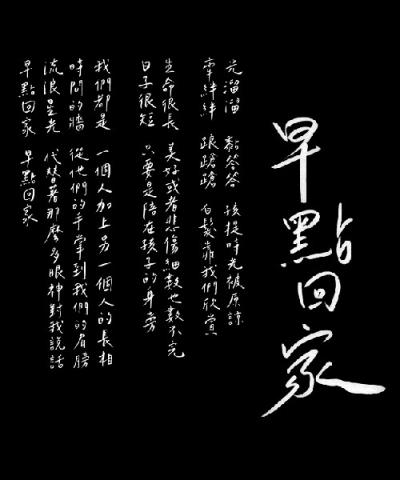 早點回家
光溜溜 黏答答 孩提時光被原諒
牽絆絆 踉蹌蹌 白髮靠我們欣賞
生命很長 美好或者悲傷細數也數不完
日子很短 只要是陪在孩子的身旁
我們都是 一個人加上另一個人的長相
時間的牆 從他們的手牽到我們的肩膀
流浪星光 代替著那麼多眼神對我說話
早點回家 早點回家